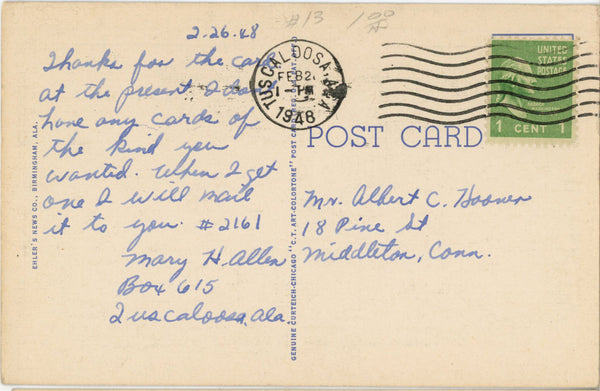 2-26-48
#13 1 00
Thanks for the card
at the present I don
have any cards of
the kind you
wanted. When I get
one I will mail
it to you. #2161
Mary H. Allen
Box 615
Tuscaloosa, Ala.
TUSCALOOSA, ALA
FEB 2
1 - PM
1948
UNITED
STATES
POSTAGE
1 CENT 1
POST CARD
Mr. Albert C. Hooner
18 Pine St
Middleton, Conn.
EHLER'S NEWS CO., BIRMINGHAM, ALA.
GENUINE CURTEICH-CHICAGO "C.T. ART-COLORTONE" POST CARD